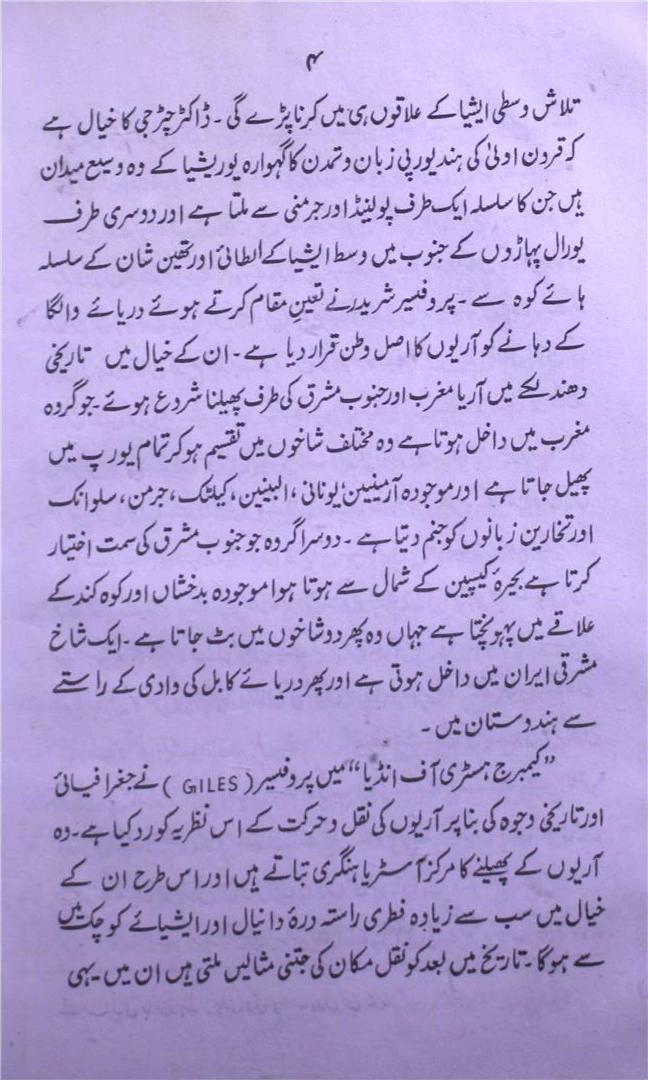 ۴
تلاش وسطی ایشیا کے علاقوں ہی میں کرنا پڑے گی۔ ڈاکٹر چٹرجی کا خیال ہے
کہ قرون اولیٰ کی ہند یورپی زبان و تمدن کا گہوارہ یوریشیا کے وہ وسیع میدان
ہیں جن کا سلسلہ ایک طرف پولینڈ اور جرمنی سے ملتا ہے اور دوسری طرف
یورال پہاڑوں کے جنوب میں وسط ایشیا کے الطائی اور تھین شان کے سلسلہ
ہائے کوہ سے۔ پروفیسر شریدر نے تعینِ مقام کرتے ہوئے دریائے والگا
کے دہانے کو آریوں کا اصل وطن قرار دیا ہے۔ ان کے خیال میں تاریخی
دھندلکے میں آریا مغرب اور جنوب مشرق کی طرف پھیلنا شروع ہوئے۔ جو گروہ
مغرب میں داخل ہوتا ہے وہ مختلف شاخوں میں تقسیم ہو کر تمام یورپ میں
پھیل جاتا ہے اور موجودہ آرمینین، یونانی، البینین، کیلٹک، جرمن، سلوانک
اور تخارین زبانوں کو جنم دیتا ہے۔ دوسرا گروہ جو جنوب مشرق کی سمت اختیار
کرتا ہے بحیرۂ کیسپین کے شمال سے ہوتا ہوا موجودہ بدخشاں اور کوہ کند کے
علاقے میں پہونچتا ہے جہاں وہ پھر دو شاخوں میں بٹ جاتا ہے۔ ایک شاخ
مشرقی ایران میں داخل ہوتی ہے اور پھر دریائے کابل کی وادی کے راستے
سے ہندوستان میں۔
”کیمبرج ہسٹری آف انڈیا“ میں پروفیسر (GILES) نے جغرافیائی
اور تاریخی وجوہ کی بنا پر آریوں کی نقل و حرکت کے اس نظریہ کو رد کیا ہے۔ وہ
آریوں کے پھیلنے کا مرکز آسٹریا ہنگری بتاتے ہیں اور اس طرح ان کے
خیال میں سب سے زیادہ فطری راستہ درۂ دانیال اور ایشیائے کوچک میں
سے ہوگا۔ تاریخ میں بعد کو نقل مکان کی جتنی مثالیں ملتی ہیں ان میں یہی